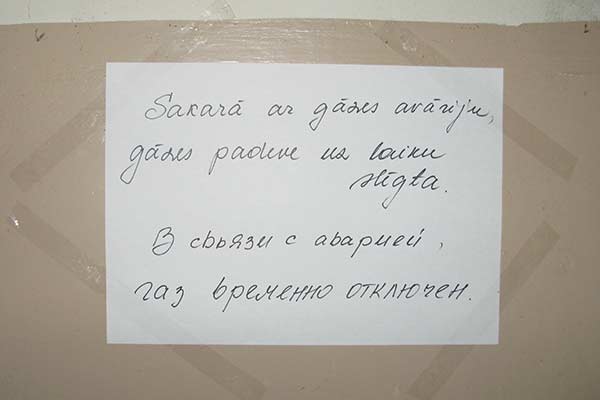 Sakarā ar gāzes avāriju,
gāzes padeve uz laiku
slēgta.
В связи с аварией,
газ временно отключен.